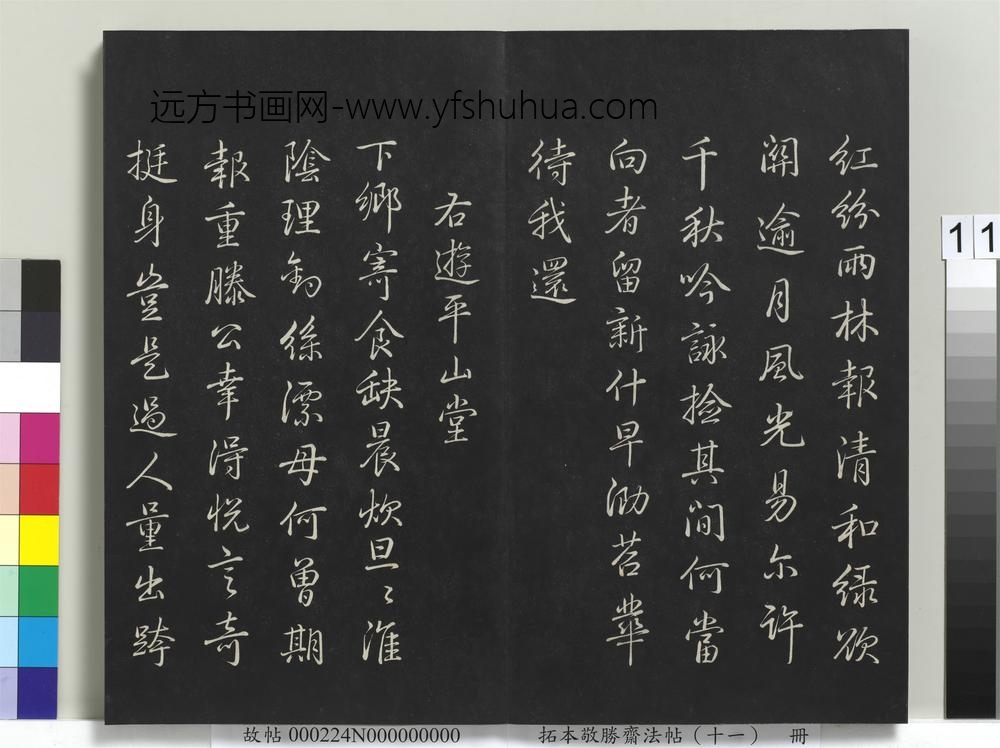 远方书画网-www.yfshuhua.com
紅紛雨林報清和緑欲
關逾月風光易尓許
千秋吟詠撿其間何當
向者留新什早泐苕華
待我還
右遊平山堂
下鄉寄食缺晨炊旦〻淮
陰理釣絲漂母何曾期
報重滕公幸得悅言奇
挺身豈是過人量出跨
11
故帖 000224N000000000
拓本敬勝齋法帖（十一） 冊